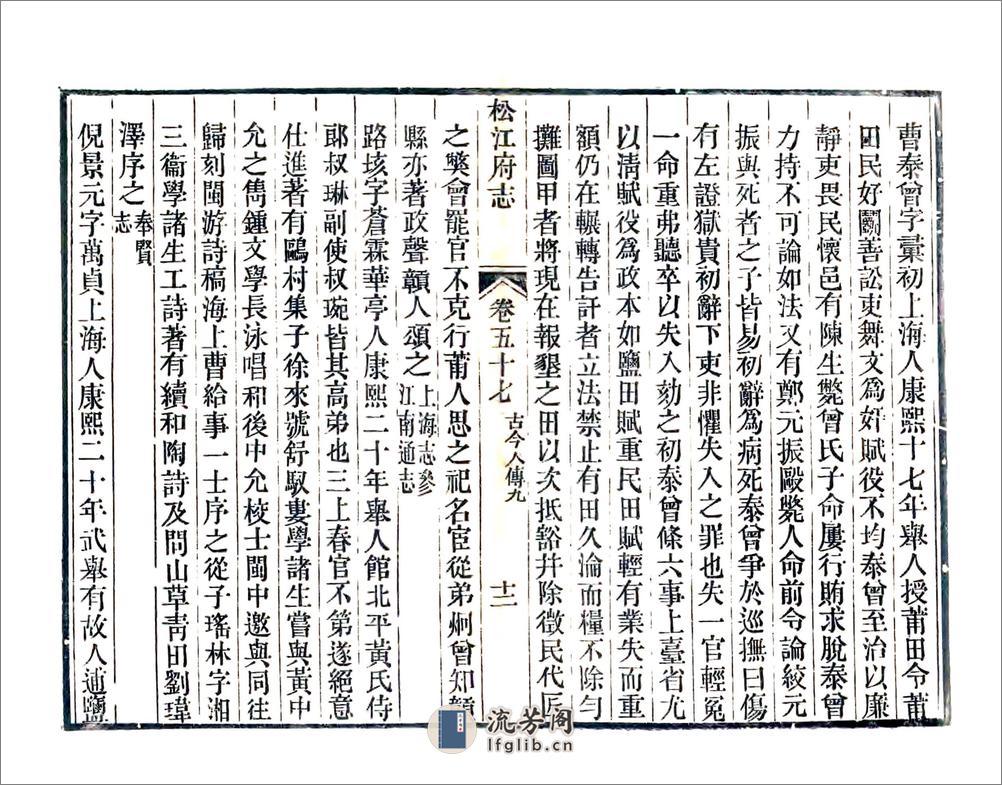 曹泰曾字彚初上海人康熙十七年舉人授莆田令莆
田民好鬭善訟吏舞文爲奸賦役不均泰曾至治以廉
靜吏畏民懷邑有陳生斃曾氏子命屢行賄求脫泰曾
力持不可論如法又有鄭元振毆斃人命前令論絞元
振與死者之子皆易初辭爲病死泰曾爭於巡撫曰傷
有左證獄貴初辭下吏非懼失入之罪也失一官輕冤
一命重弗聽卒以失入劾之初泰曾條六事上臺省尤
以淸賦役爲政本如鹽田賦重民田賦輕有業失而重
額仍在輾轉告訐者立法禁止有田久淪而糧不除勻
攤圖甲者將現在報墾之田以次抵豁幷除徵民代匠
松江府志 卷五十七 古今人傳九 十二
之獘會罷官不克行莆人思之祀名宦從弟炯曾知贛
縣亦著政聲贛人頌之上海志參江南通志
路垓字蒼霖華亭人康熙二十年舉人館北平黃氏侍
郞叔琳副使叔琬皆其高弟也三上春官不第遂絕意
仕進著有鷗村集子徐來號舒馭婁學諸生嘗與黃中
允之雋鍾文學長泳唱和後中允校士閩中邀與同往
歸刻閩游詩稿海上曹給事一士序之從子瑤林字湘
三衞學諸生工詩著有續和陶詩及問山草靑田劉瑋
澤序之奉賢志
倪景元字萬貞上海人康熙二十年武舉有故人逋鹽
流芳阁
lfglib.cn